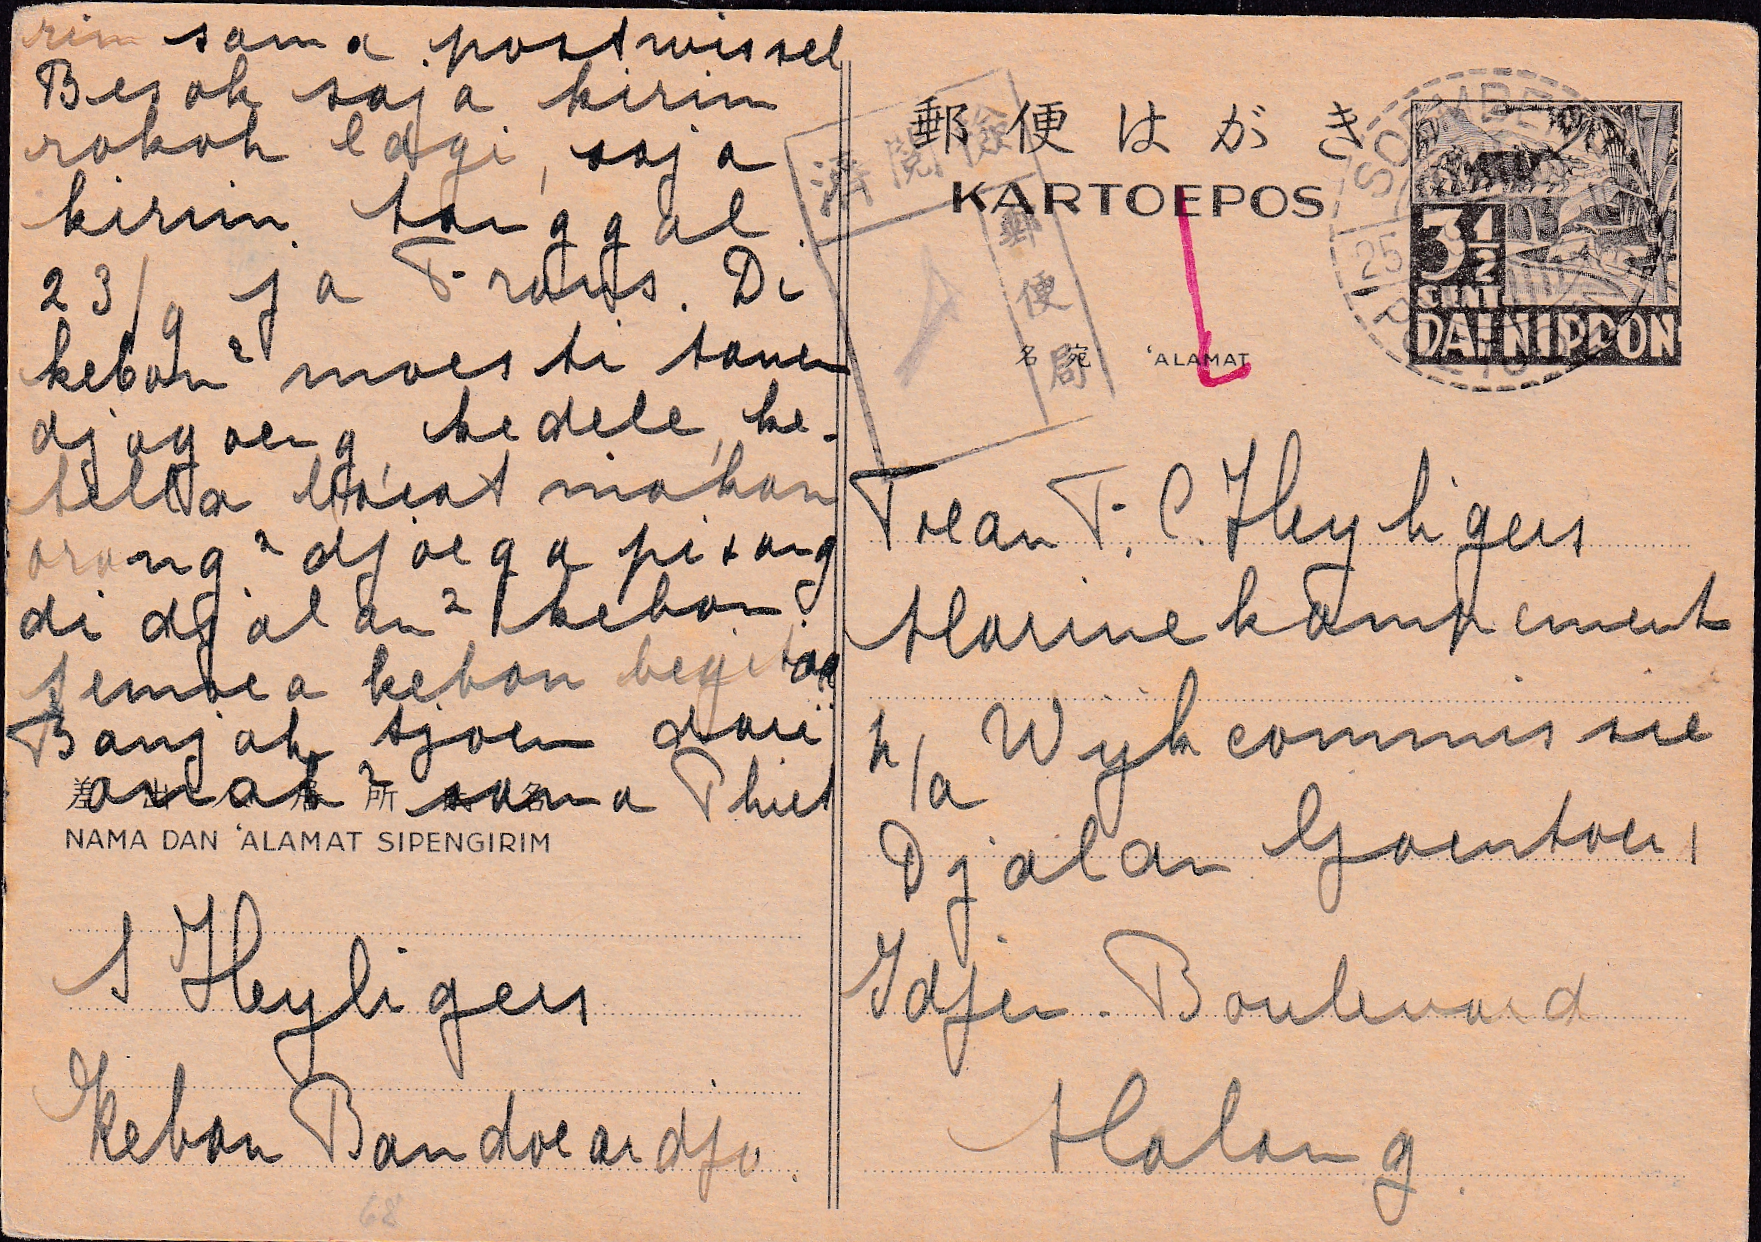 rim sama postwissel
Besok saja kirim
rokok lagi, saja
kirim tanggal
23/9 ja Frans. Di
kebon² moesti tanem
djagoeng, kedele, ke-
tella boeat makan
orang² djoega pisang
di djalan² kebon.
Semoea kebon begitoe
Banjak tjioem dari
anak² sama Thies
差出人住所氏名
NAMA DAN 'ALAMAT SIPENGIRIM
S Heyligers
Kebon Bandoeardjo
68
郵便はがき
KARTOEPOS
検閲済
郵便局
名宛 'ALAMAT
3½
SENT
DAI NIPPON
SOEMBER
25
Toean F. C. Heyligers
Marinekampement
p/a Wijkcommissie
Djalan Goentoer 1
Idjen-Boulevard
Malang